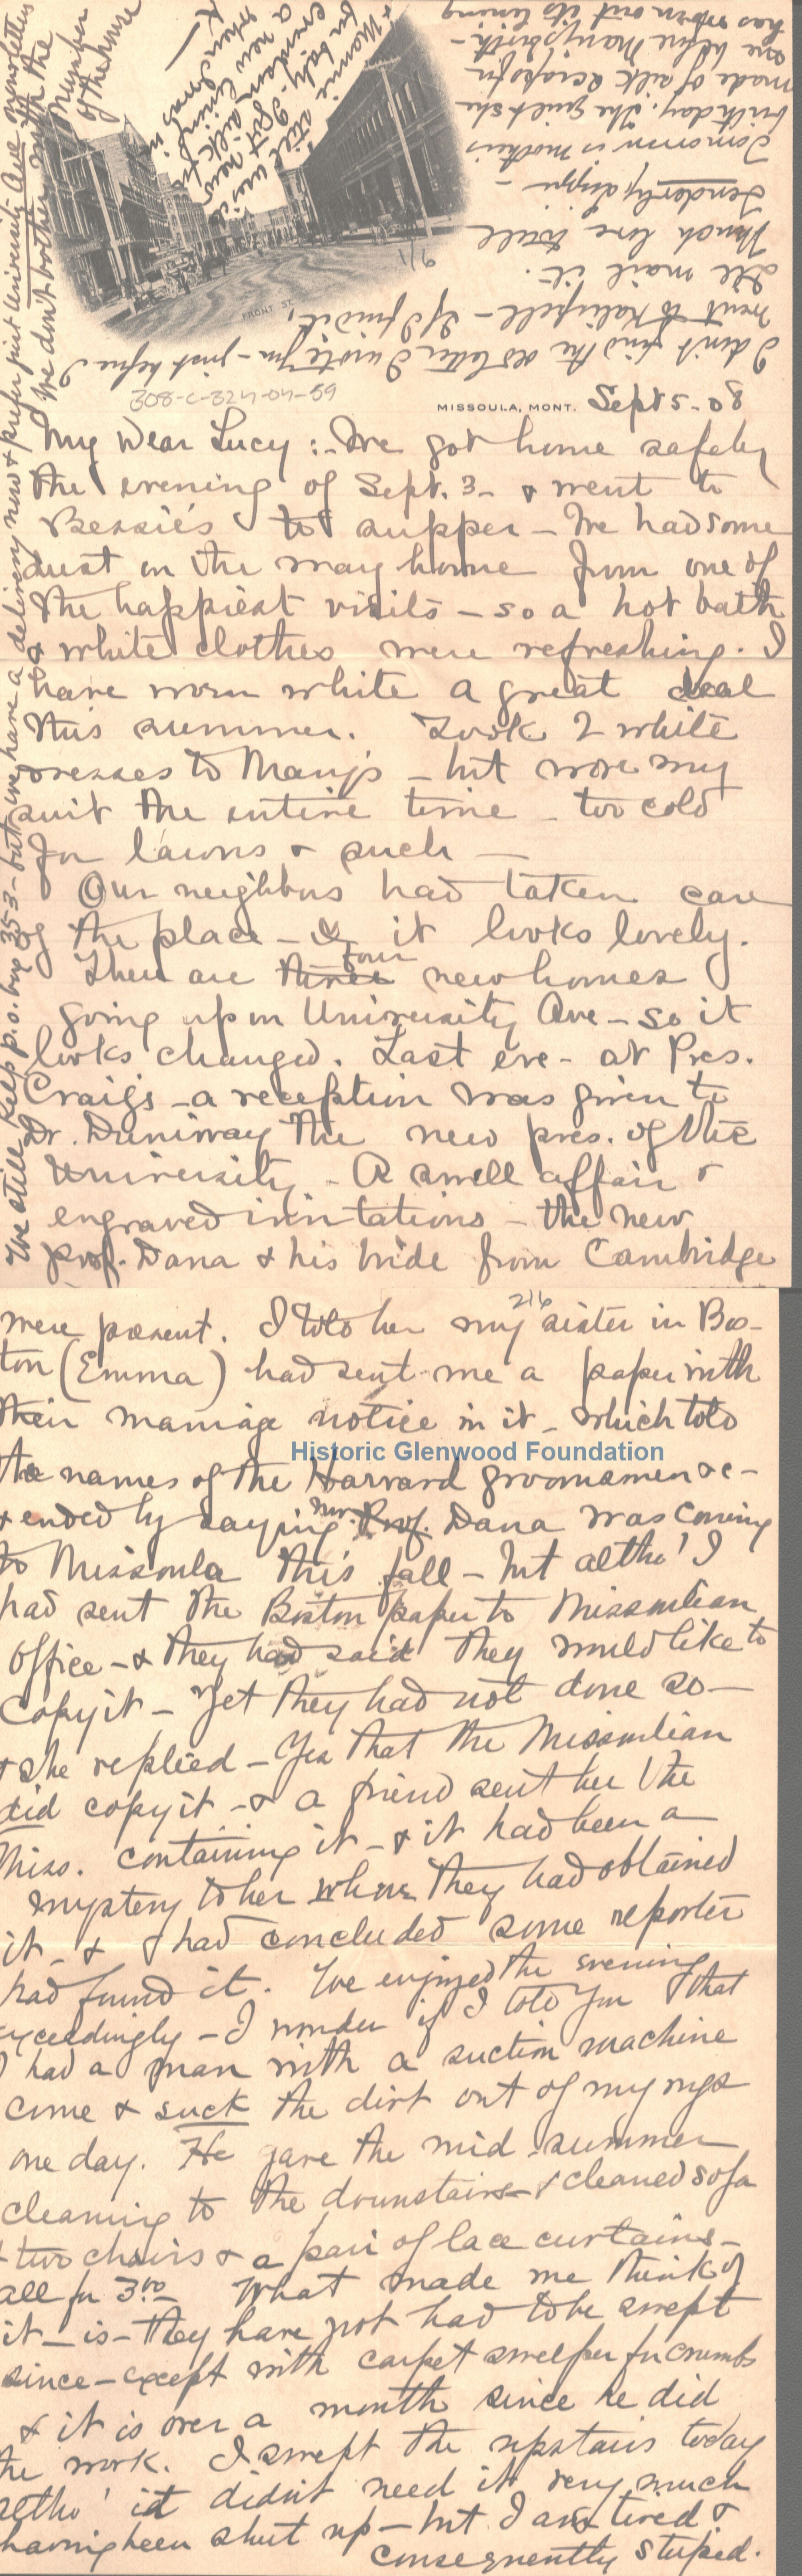 308-C-324-04-59
MISSOULA, MONT. Sept 5-08
My Dear Lucy:- We got home safely
the evening of Sept. 3- & went to
Bessie's to supper - We had some
dust on the way home from one of
the happiest visits - so a hot bath
& white clothes were refreshing. I
have worn white a great deal
this summer. Took 2 white
dresses to Mary's - but wore my
suit the entire time - too cold
for lawns & such -
Our neighbors had taken care
of the place - & it looks lovely.
There are three four new homes
going up on University Ave - so it
looks changed. Last eve - at Pres.
Craig's - a reception was given to
Dr. Duniway the new pres. of the
University - A swell affair &
engraved invitations - the new
prof. Dana & his bride from Cambridge
216
were present. I told her my sister in Bos-
ton (Emma) had sent me a paper with
their marriage notice in it - which told
the names of the Harvard groomsmen &c -
Historic Glenwood Foundation
& ended by saying Mr. Prof. Dana was coming
to Missoula this fall - but altho' I
had sent the Boston paper to Missoulian
Office - & they had said they would like to
copy it - Yet they had not done so -
& she replied - Yes that the Missoulian
did copy it - & a friend sent her the
Miss. containing it - & it had been a
mystery to her where they had obtained
it - & had concluded some reporter
had found it. We enjoyed the evening
exceedingly - I wonder if I told you that
I had a man with a suction machine
come & suck the dirt out of my rugs
one day. He gave the mid-summer
cleaning to the downstairs & cleaned sofa
& two chairs & a pair of lace curtains -
all for 3.00 What made me think of
it - is - they have not had to be swept
since - except with carpet sweeper for crumbs
& it is over a month since he did
the work. I swept the upstairs today
altho' it didn't need it very much
having been shut up - but I am tired &
consequently stupid.
I didn't find the old letter I wrote you - just before I
went to Kalispell - If I find it,
I'll mail it.
Much love to all
Tenderly,
Tomorrow is mother's
birthday. The quilt she
made of silk scraps for
me before
has worn out its lining
& Mamie still uses it
for baby. I got new
a new lining for
when I was in
K -
FRONT ST.
1/6
We still keep p.o. box 353 - but we have a delivery now & prefer just University Ave. on newsletters
We don't bother with the
number
of the home